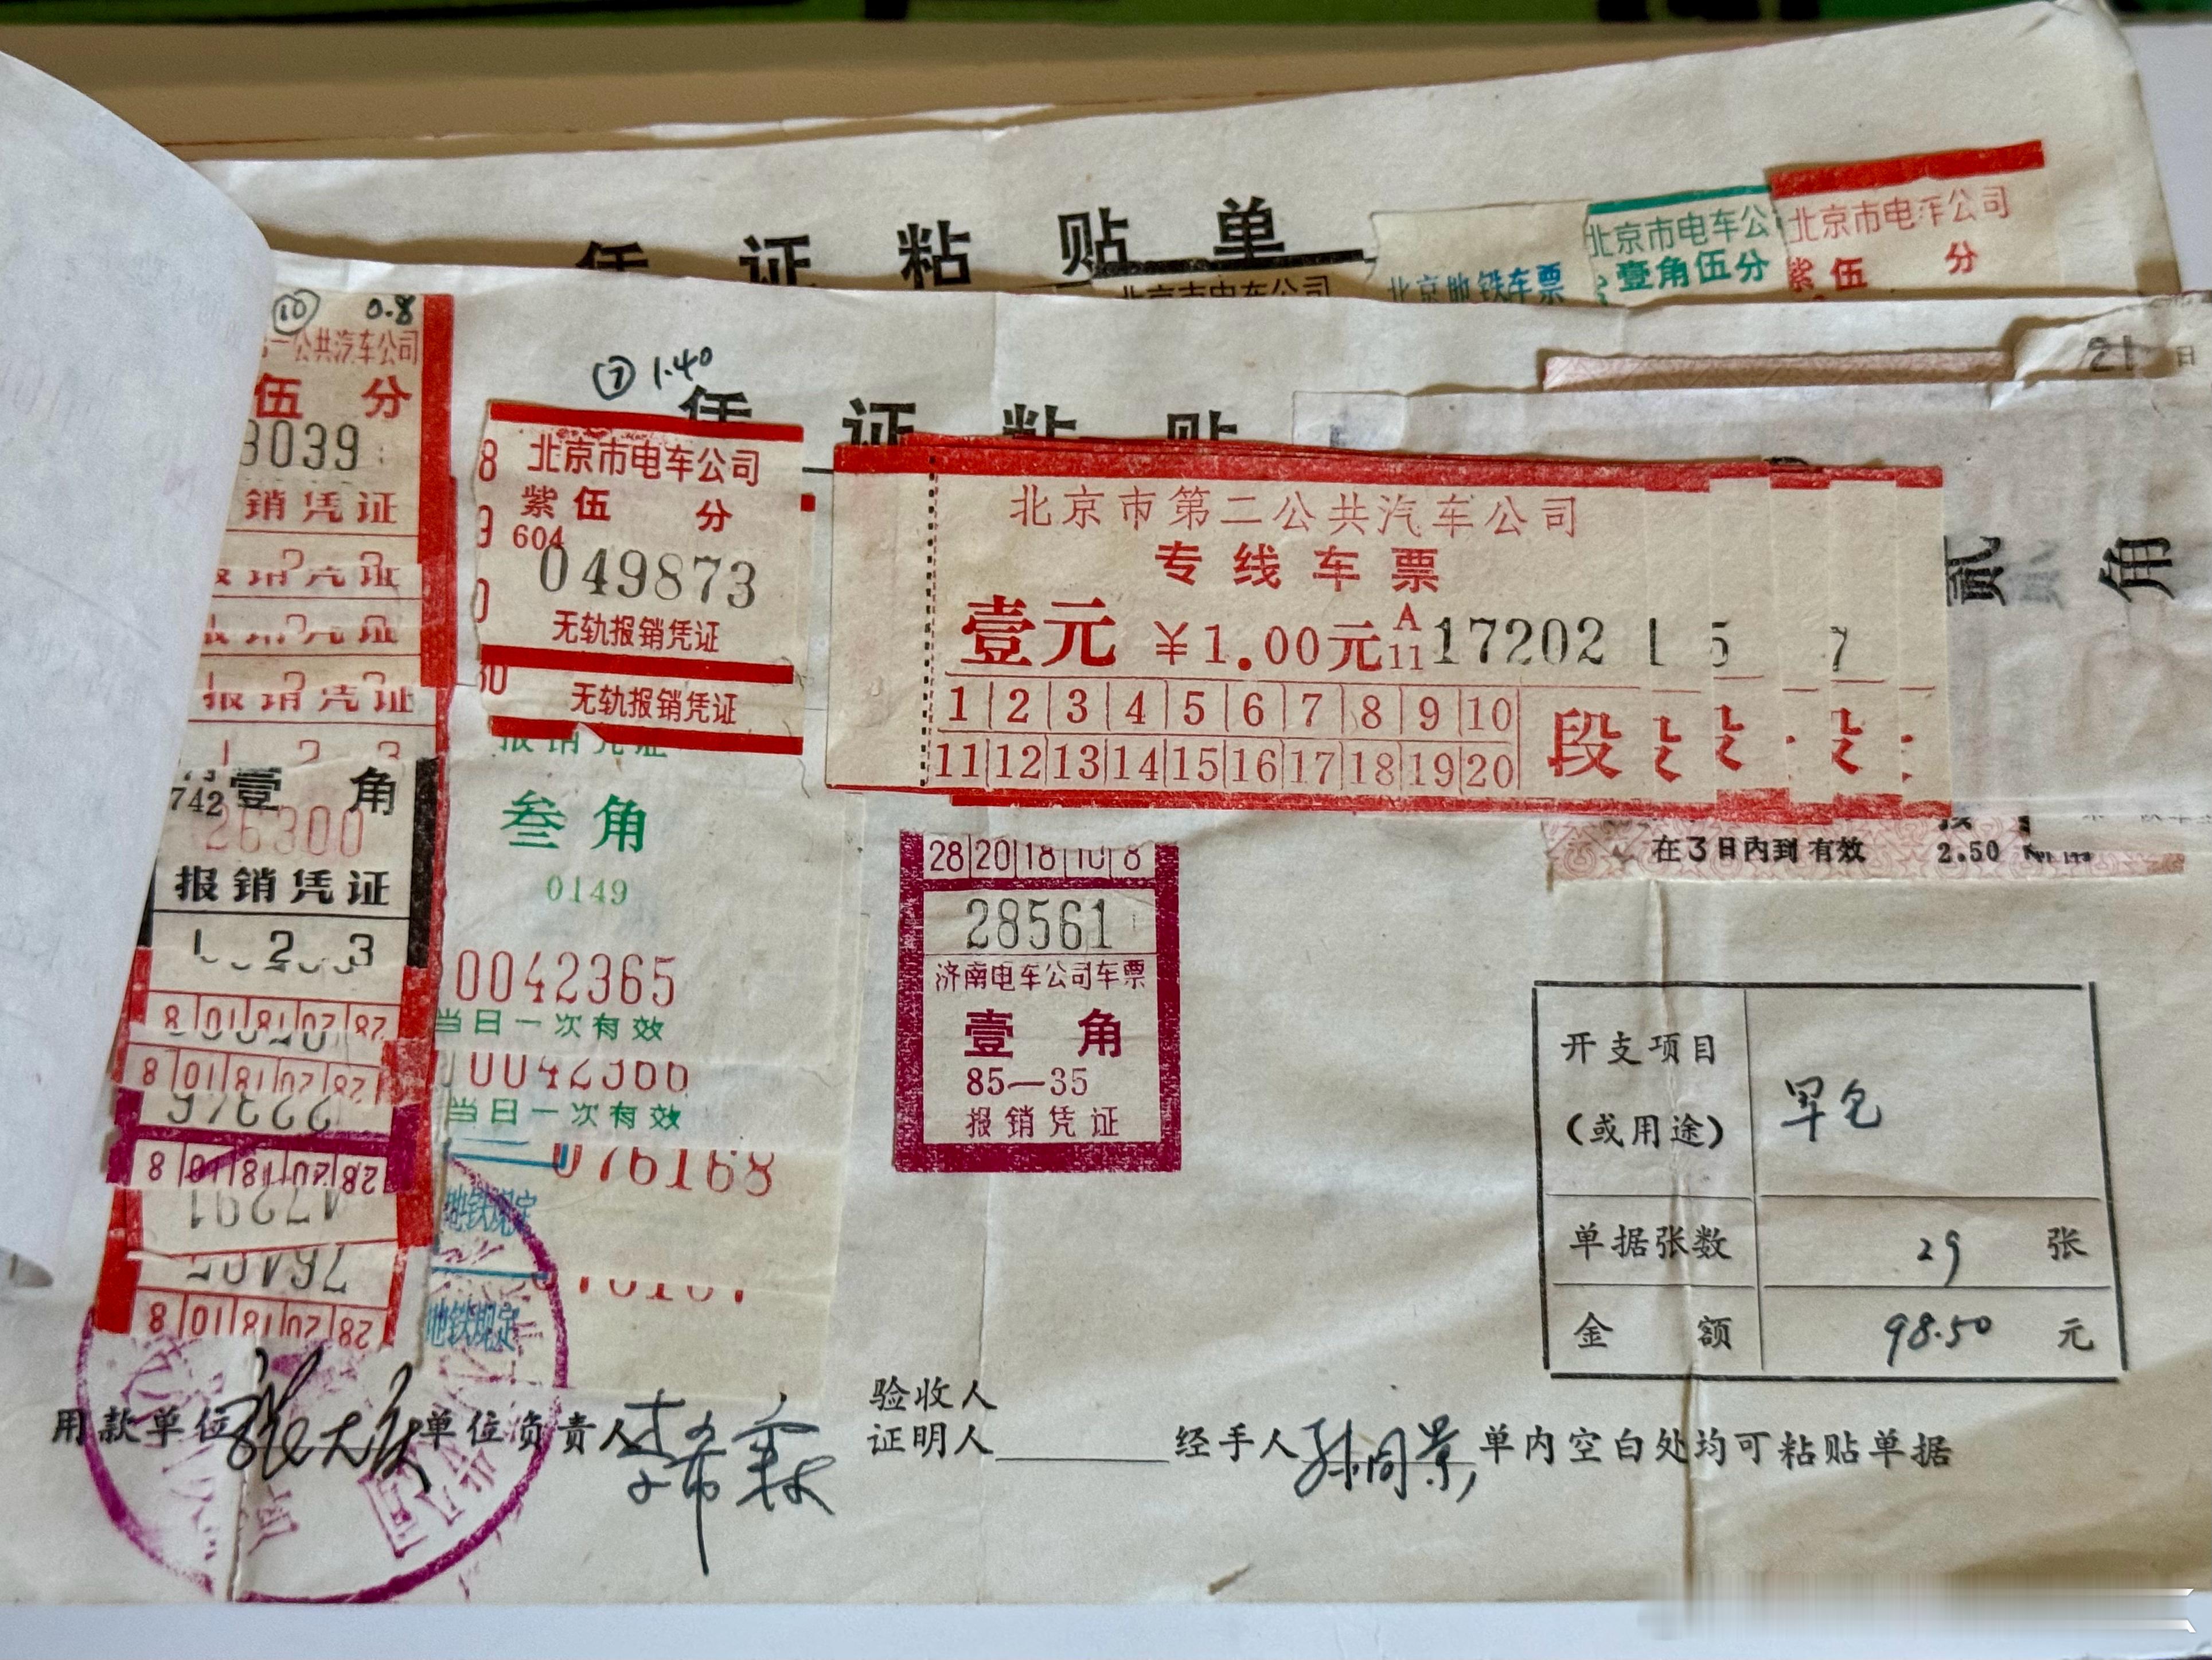 凭 证 粘 贴 单
北京市电车公司
北京地铁车票
北京市电车公
壹角伍分
北京市电车公司
紫 伍 分
21 日
⑩ 0.8
一公共汽车公司
伍 分
3039
销 凭 证
报 销 凭 证
1 2 3
壹 角
742
26300
报 销 凭 证
1 2 3
28 20 18 10 8
28 20 18 10 8
28 20 18 10 8
47291
28 20 18 10 8
⑦ 1.40
凭 证 粘 贴
北京市电车公司
紫 伍 分
604
049873
无轨报销凭证
无轨报销凭证
报 销 凭 证
叁 角
0149
0042365
当日一次有效
0042366
当日一次有效
076168
地铁规定
地铁规定
北京市第二公共汽车公司
专 线 车 票
壹元 ¥1.00元 A 11 17202
1 5 7
1 2 3 4 5 6 7 8 9 10
11 12 13 14 15 16 17 18 19 20
段
贰 角
在3日内到有效 2.50
28 20 18 10 8
28561
济南电车公司车票
壹 角
85—35
报 销 凭 证
开支项目
(或用途)
单据张数 29 张
金 额 98.50 元
用款单位
单位负责人
验收人
证明人
经手人
单内空白处均可粘贴单据